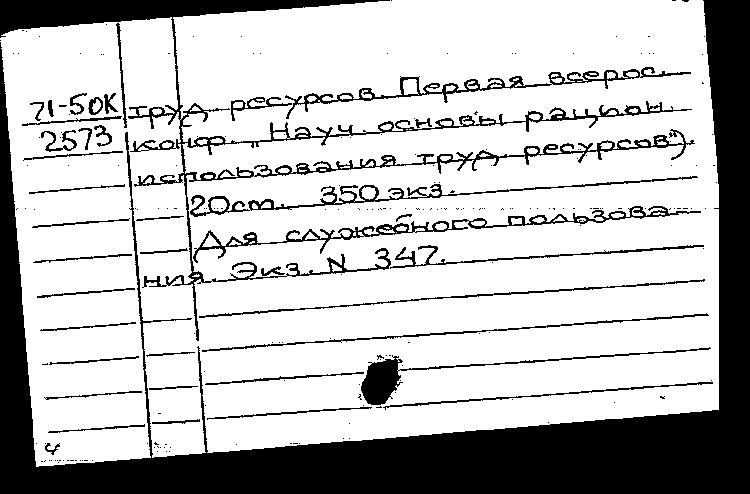 71-50К труд ресурсов. Первая всерос.
2573 конф. „Науч. основы рацион.
использования труд ресурсов").
20 ст. 350 экз.
Для служебного пользова-
ния. Экз. N 347.